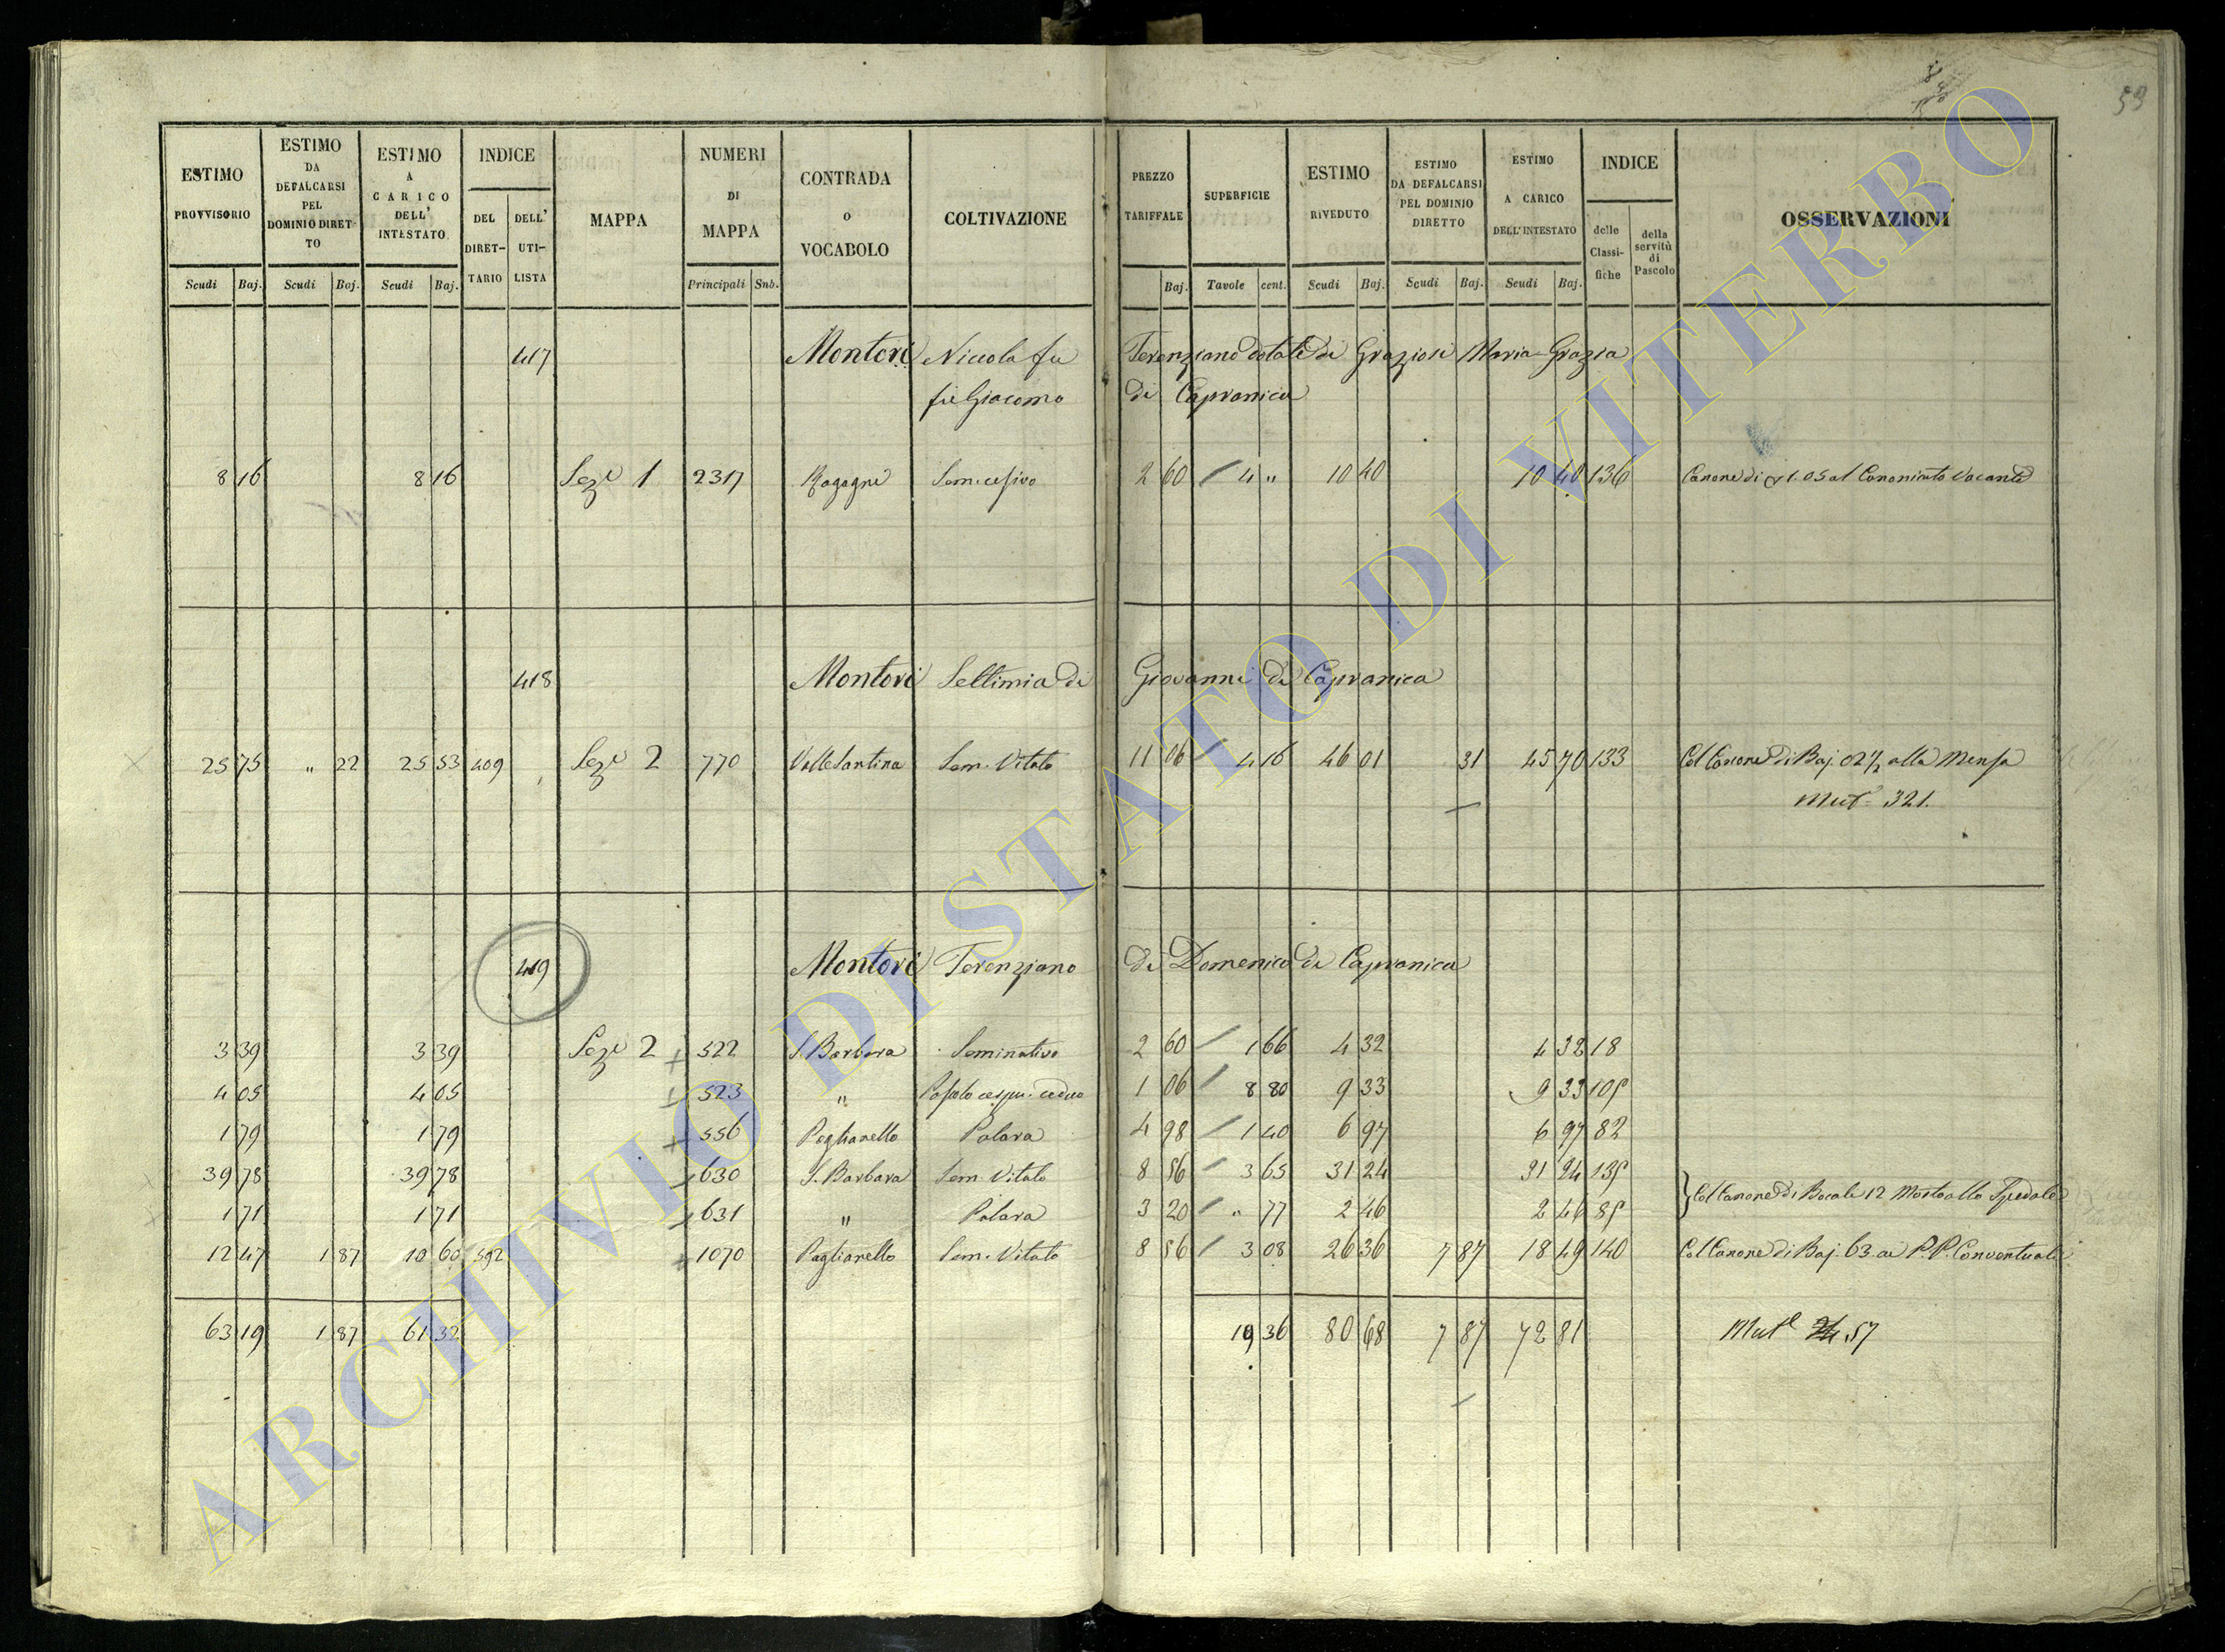 59
ESTIMO PROVVISORIO Scudi Baj.
ESTIMO DA DEFALCARSI PEL DOMINIO DIRETTO Scudi Baj.
ESTIMO A CARICO DELL' INTESTATO Scudi Baj.
INDICE DEL DIRETTARIO DELL' UTILISTA
MAPPA
NUMERI DI MAPPA Principali Snb.
CONTRADA O VOCABOLO
COLTIVAZIONE
PREZZO TARIFFALE Baj.
SUPERFICIE Tavole cent.
ESTIMO RIVEDUTO Scudi Baj.
ESTIMO DA DEFALCARSI PEL DOMINIO DIRETTO Scudi Baj.
ESTIMO A CARICO DELL'INTESTATO Scudi Baj.
INDICE delle Classifiche della servitù di Pascolo
OSSERVAZIONI
417 Montori Niccola fu Terenziano dotale di Graziosi Maria Grazia
fu Giacomo di Capranica
8 16 8 16 Seze 1 2317 Ragagni 2 60 / 4 " 10 40 10 40 136 Canone di 1.05 al Canonicato Vacante
418 Montori Settimia di Giovanni di Capranica
25 75 " 22 25 53 409 Seze 2 770 Valle Santina Sem. Vitato 11 06 / 4 16 46 01 31 45 70 133 Col Canone di Baj. 02½ alla Mensa
Mut. 321.
419 Montori Terenziano di Domenico di Capranica
3 39 3 39 Seze 2 + 522 S. Barbara Seminativo 2 60 / 1 66 4 32 4 32 18
4 05 4 05 + 523 " Pascolo cespu. ceduo 1 06 / 8 80 9 33 9 33 105
1 79 1 79 + 556 Paglianello Palara 4 98 / 1 40 6 97 6 97 82
39 78 39 78 + 630 S. Barbara Sem. Vitato 8 56 / 3 65 31 24 31 24 135
1 71 1 71 + 631 " Palara 3 20 / " 77 2 46 2 46 85 } Col Canone di Bocali 12 Mosto allo Spedale
12 47 1 87 10 60 392 + 1070 Paglianello Sem. Vitato 8 56 / 3 08 26 36 7 87 18 49 140 Col Canone di Baj. 63 ai P.P. Conventuali
63 19 1 87 61 32 19 36 80 68 7 87 72 81 Mut. 57
ARCHIVIO DI STATO DI VITERBO